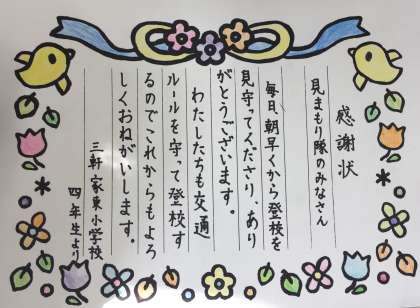 感謝状
見まもり隊のみなさん
毎日、朝早くから登校を
見守ってくださり、あり
がとうございます。
わたしたちも交通
ルールを守って登校す
るのでこれからもよろ
しくおねがいします。
三軒家東小学校
四年生より